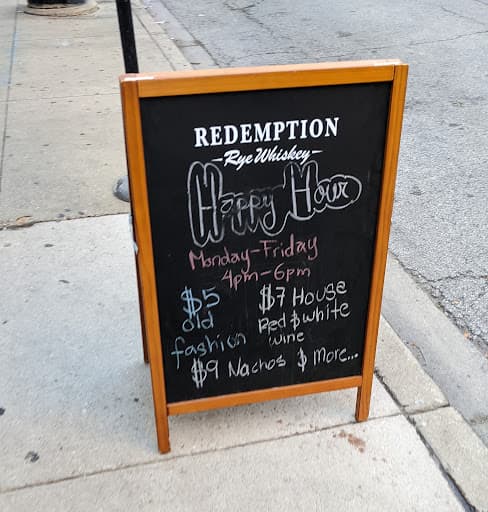 REDEMPTION
-Rye Whiskey-
Happy Hour
Monday-Friday
4pm-6pm
$5
old
fashion
$7 House
Red & white
wine
$9 Nachos & More...